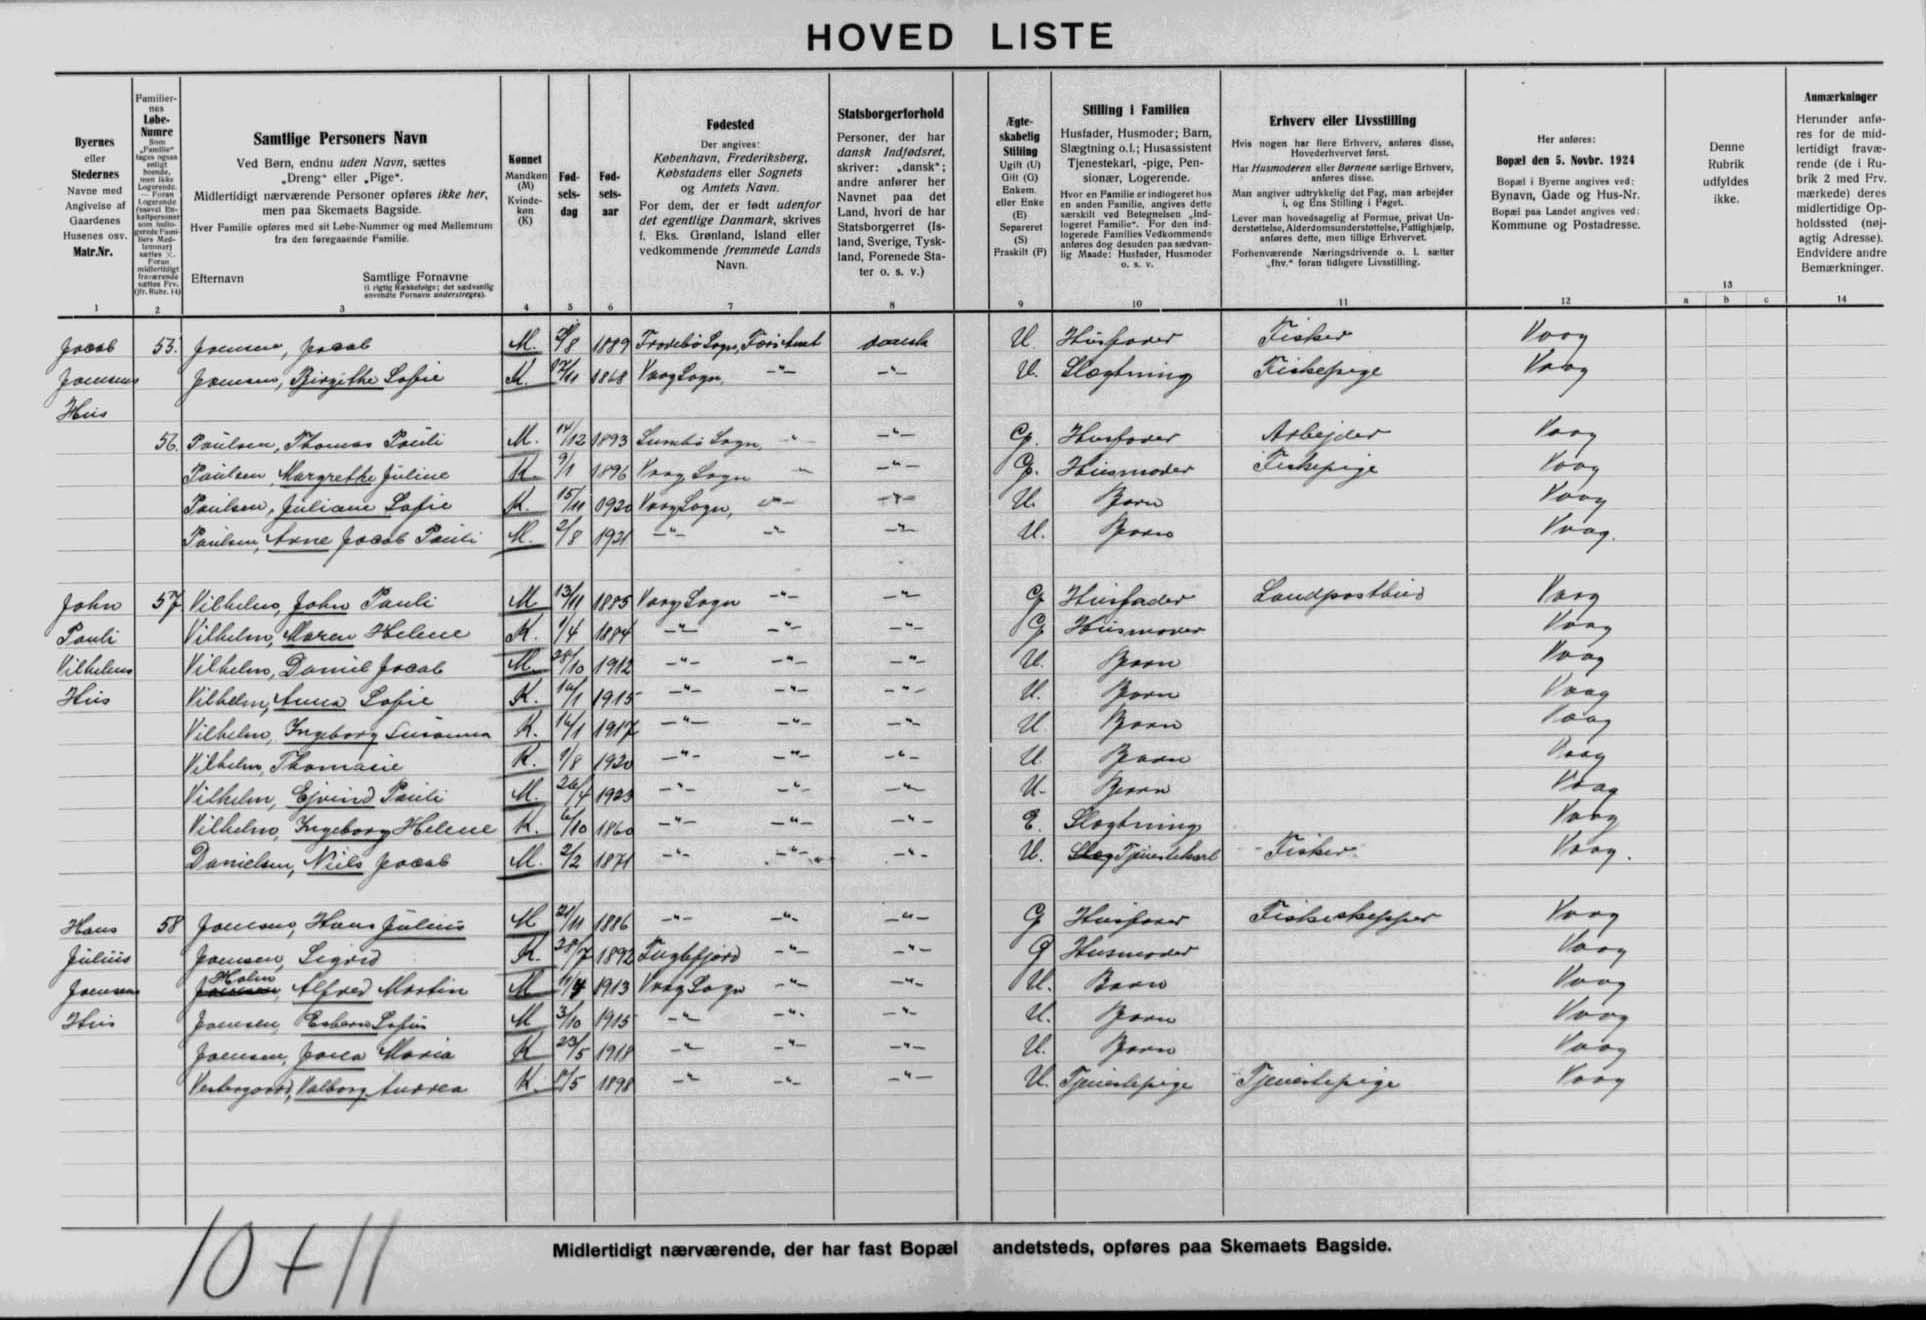 HOVED LISTE
Byernes
eller
Stedernes
Navne med
Angivelse af
Gaardenes
Husenes osv.
Matr.Nr.
1
Familier-
nes
Løbe-
Numre
Som
„Familie“
tages ogsaa
enligt
boende,
men ikke
Logerende.
2
Samtlige Personers Navn
Ved Børn, endnu uden Navn, sættes
„Dreng“ eller „Pige“.
Midlertidigt nærværende Personer opføres ikke her,
men paa Skemaets Bagside.
Hver Familie opføres med sit Løbe-Nummer og med Mellemrum
fra den foregaaende Familie.
Efternavn Samtlige Fornavne
(i rigtig Rækkefølge; det sædvanlig
anvendte Fornavn understreges).
3
Kønnet
Mandkøn
(M)
Kvinde-
køn
(K)
4
Fød-
sels-
dag
5
Fød-
sels-
aar
6
Fødested
Der angives:
København, Frederiksberg,
Købstadens eller Sognets
og Amtets Navn.
For dem, der er født udenfor
det egentlige Danmark, skrives
f. Eks. Grønland, Island eller
vedkommende fremmede Lands
Navn.
7
Statsborgerforhold
Personer, der har
dansk Indfødsret,
skriver: „dansk“;
andre anfører her
Navnet paa det
Land, hvori de har
Statsborgerret (Is-
land, Sverige, Tysk-
land, Forenede Sta-
ter o. s. v.)
8
Ægte-
skabelig
Stilling
Ugift (U)
Gift (G)
Enkem.
eller Enke
(E)
Separeret
(S)
Fraskilt (F)
9
Stilling i Familien
Husfader, Husmoder; Barn,
Slægtning o.l.; Husassistent
Tjenestekarl, -pige, Pen-
sionær, Logerende.
Hvor en Familie er indlogeret hos
en anden Familie, angives dette
særskilt ved Betegnelsen „Ind-
logeret Familie“. For den ind-
logerede Families Vedkommende
anføres dog desuden paa sædvan-
lig Maade: Husfader, Husmoder
o. s. v.
10
Erhverv eller Livsstilling
Hvis nogen har flere Erhverv, anføres disse,
Hovederhvervet først.
Har Husmoderen eller Børnene særlige Erhverv,
anføres disse.
Man angiver udtrykkelig det Fag, man arbejder
i, og Ens Stilling i Faget.
Lever man hovedsagelig af Formue, privat Un-
derstøttelse, Alderdomsunderstøttelse, Fattighjælp,
anføres dette, men tillige Erhvervet.
Forhenværende Næringsdrivende o. l. sætter
„fhv.“ foran tidligere Livsstilling.
11
Her anføres:
Bopæl den 5. Novbr. 1924
Bopæl i Byerne angives ved:
Bynavn, Gade og Hus-Nr.
Bopæl paa Landet angives ved:
Kommune og Postadresse.
12
Denne
Rubrik
udfyldes
ikke.
13
a b c
Anmærkninger
Herunder anfø-
res for de mid-
lertidigt fravæ-
rende (de i Ru-
brik 2 med Frv.
mærkede) deres
midlertidige Op-
holdssted (nøj-
agtig Adresse).
Endvidere andre
Bemærkninger.
14
Jacob 55. Joensen, Jacob M. 1889 Frodebø Sogn, Færø Amt dansk U. Husfader Fisker Vaag
Joensens Joensen, Birgithe Sofie K. 12/11 1868 Vaag Sogn, -"- -"- U. Slægtning Fiskepige Vaag
Hus
56. Paulsen, Thomas Pauli M. 14/12 1893 Sumbø Sogn, " -"- G. Husfader Arbejder Vaag
Paulsen, Margrethe Juline K. 9/1 1896 Vaag Sogn " -"- G. Husmoder Fiskepige Vaag
Paulsen, Juliane Sofie K. 15/11 1920 Vaag Sogn, -"- -"- U. Barn Vaag
Paulsen, Arne Jacob Pauli M. 2/8 1921 -"- -"- -"- U. Barn Vaag.
John 57 Vilhelm, John Pauli M 13/11 1885 Vaag Sogn -"- -"- G Husfader Landpostbud Vaag
Pauli Vilhelm, Maren Helene K. 1/4 1884 -"- -"- -"- G Husmoder Vaag
Vilhelms Vilhelm, Daniel Jacob M. 28/10 1912 -"- -"- -"- U. Barn Vaag
Hus Vilhelm, Anna Sofie K. 1915 -"- -"- -"- U. Barn Vaag
Vilhelm, Ingeborg Susanna K. 1917 -"- -"- -"- U Barn Vaag
Vilhelm, Thomasie K. 1/8 1920 -"- -"- -"- U Barn Vaag
Vilhelm, Ejvind Pauli M. 26/4 1923 -"- -"- -"- U. Barn Vaag
Vilhelm, Ingeborg Helene K. 6/10 1860 -"- -"- -"- E. Slægtning Vaag
Danielsen, Niels Jacob M. 2/2 1871 -"- -"- -"- U. Slæg Tjenestekarl Fisker Vaag.
Hans 58 Joensen, Hans Julius M 21/11 1886 -"- -"- -"- G Husfader Fiskeskipper Vaag
Julius Joensen, Sigrid K. 28/7 1892 Fuglefjord -"- -"- G Husmoder Vaag
Joensens Joensen, Holm Alfred Martin M 11/4 1913 Vaag Sogn -"- -"- U. Barn Vaag
Hus Joensen, Esbern Sofus M 3/10 1915 -"- -"- -"- U. Barn Vaag
Joensen, Jona Maria K 23/5 1918 -"- -"- -"- U. Barn Vaag
Vestergaard, Valborg Andrea K. 1898 -"- -"- -"- U. Tjenestepige Tjenestepige Vaag
Midlertidigt nærværende, der har fast Bopæl andetsteds, opføres paa Skemaets Bagside.
10 + 11